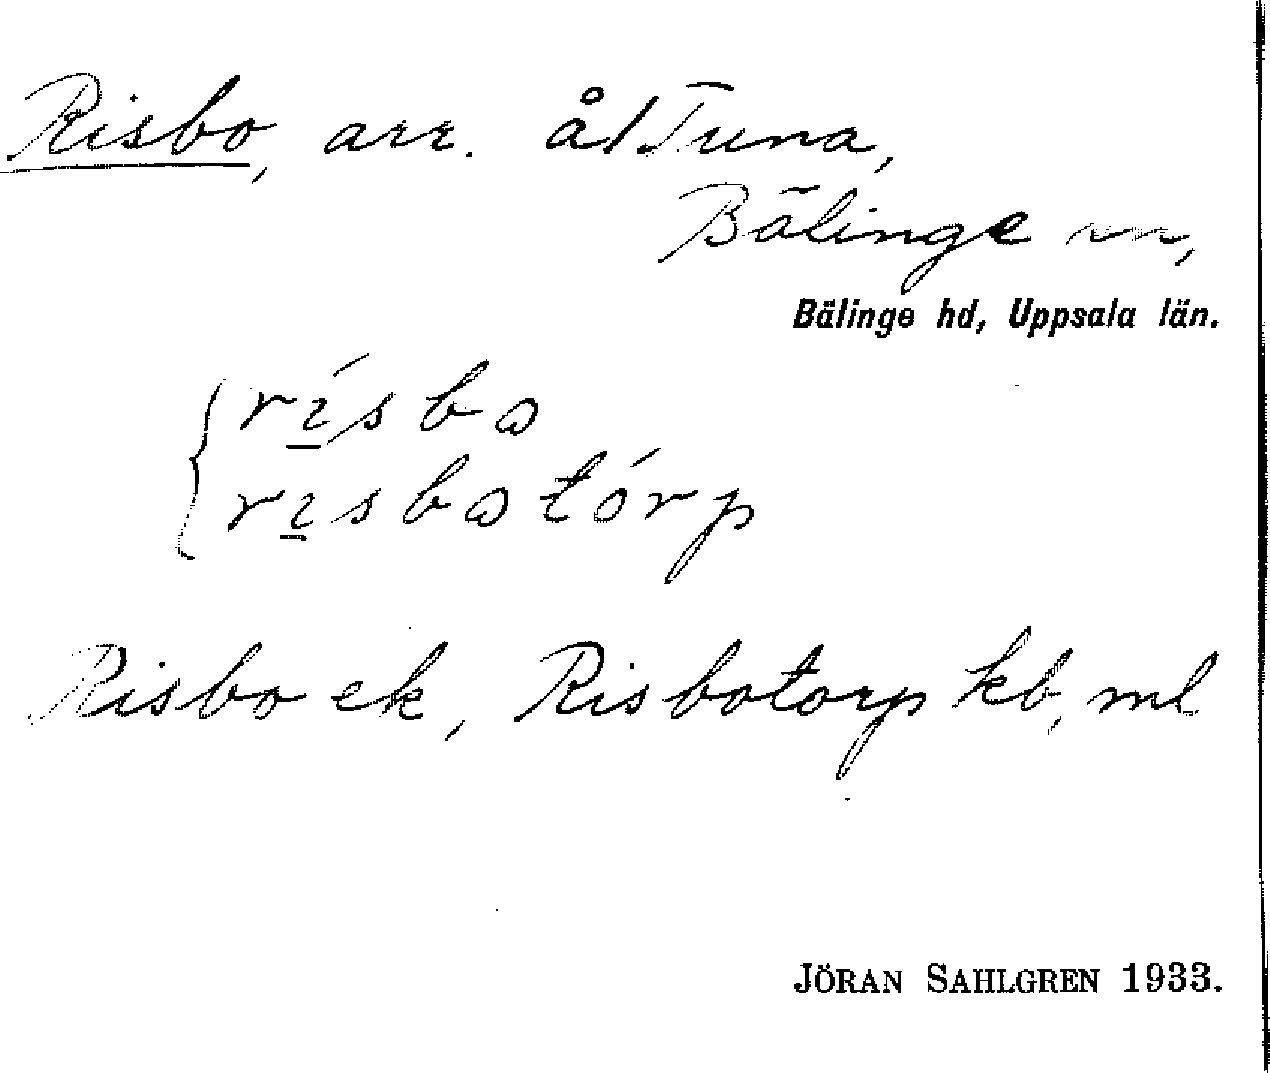 Risbo, arr. å/Tuna,
Bälinge sn,
Bälinge hd, Uppsala län.
rísbꞷ
risbꞷtórp
Risbo ek, Risbotorp kb, ml
JÖRAN SAHLGREN 1933.